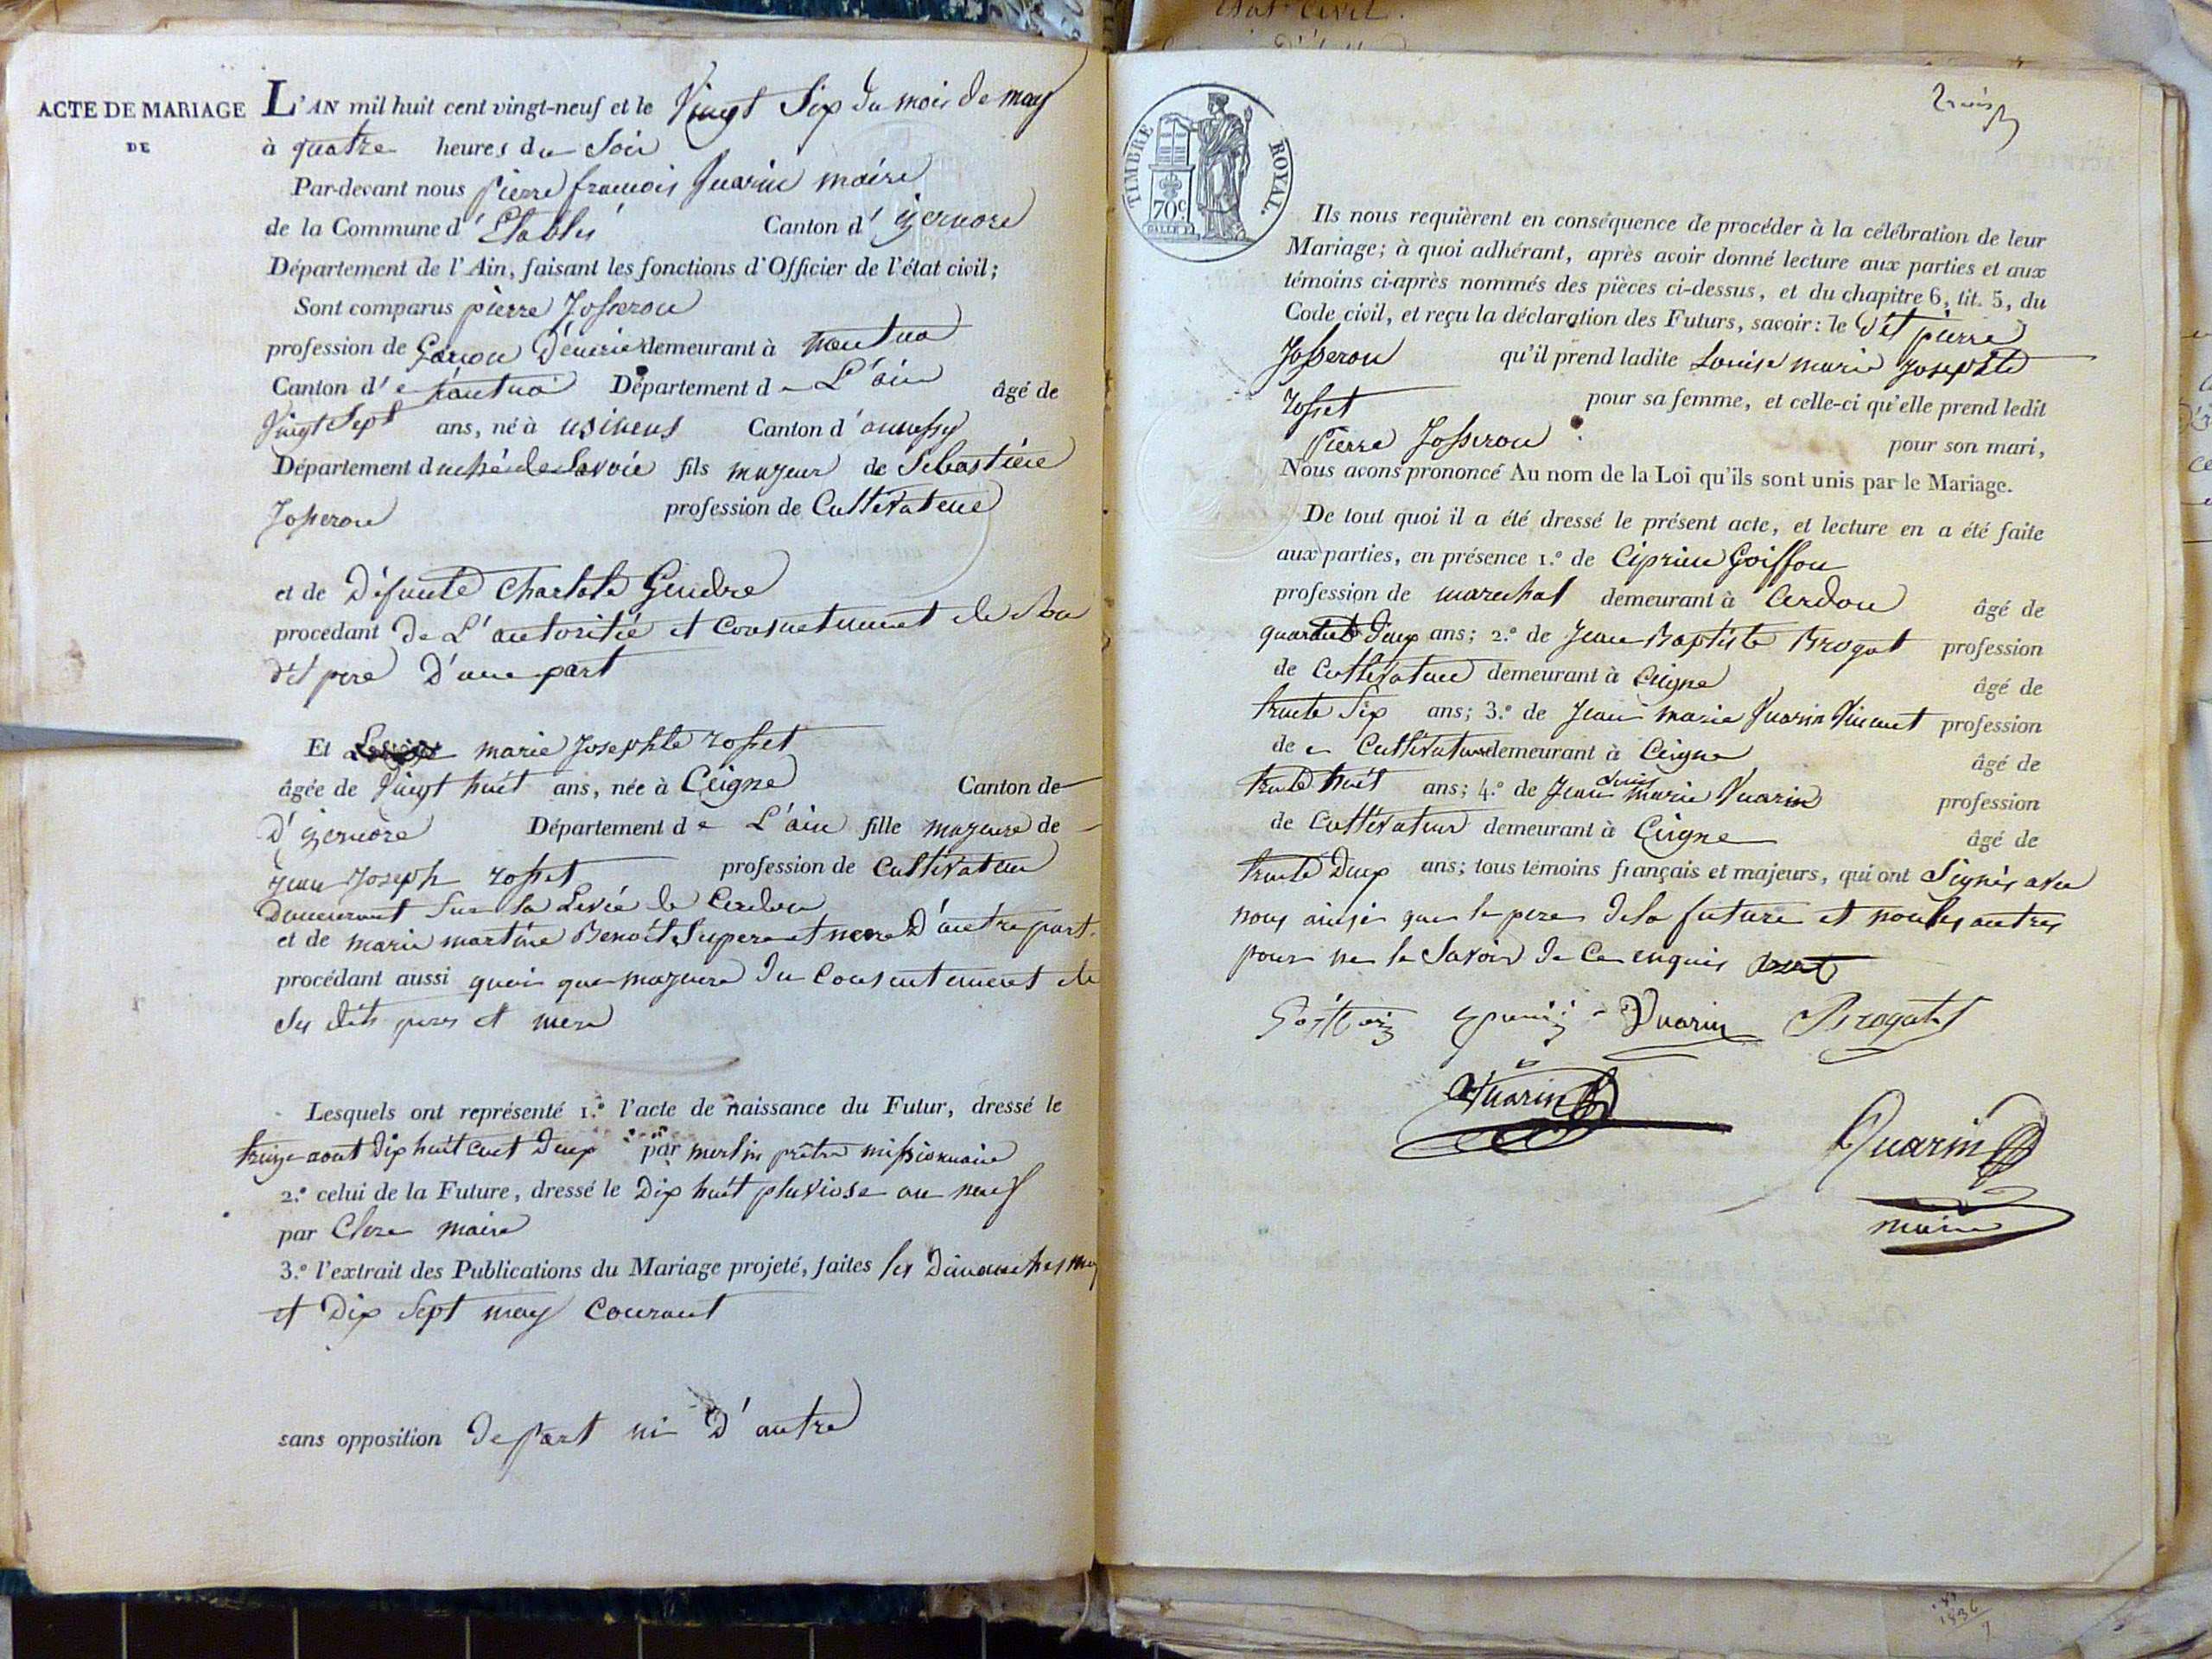 ACTE DE MARIAGE
DE
L'AN mil huit cent vingt-neuf et le Vingt Six du mois de may
à quatre heures du Soir
Par-devant nous pierre françois Vuarin maire
de la Commune d'Etables Canton d'izernore
Département de l'Ain, faisant les fonctions d'Officier de l'état civil;
Sont comparus pierre Josserou
profession de Garçon D'écurie demeurant à nantua
Canton d'e nantua Département de L'ain âgé de
Vingt Sept ans, né à usinens Canton d'annessy
Département duché de Savoie fils majeur de Sebastiene
Josserou profession de Cultivateur
et de Défunte Charlote Gendre
procédant de L'autoritée et Consentement de Son
dit pere D'une part
Et marie Josephte rosset
âgée de Vingt huit ans, née à Ceigne Canton de
D'izernore Département de L'ain fille majeure de
jean Joseph rosset profession de Cultivateur
Demeurant Sur la Levée de Cerdon
et de marie martine Benoit Su pere et mere D'autre part.
procédant aussi quoi que majeure du Consentement de
Ses dits peres et mere
Lesquels ont représenté 1.º l'acte de naissance du Futur, dressé le
treize aout Dix huit cent Deux par merlin prêtre missionnaire
2.º celui de la Future, dressé le Dix huit pluviose an neuf
par Clere maire
3.º l'extrait des Publications du Mariage projeté, faites les Dimanches
et Dix Sept may Courant
sans opposition De part ni D'autre
TIMBRE ROYAL.
70c
Ils nous requièrent en conséquence de procéder à la célébration de leur
Mariage; à quoi adhérant, après avoir donné lecture aux parties et aux
témoins ci-après nommés des pièces ci-dessus, et du chapitre 6, tit. 5, du
Code civil, et reçu la déclaration des Futurs, savoir: le Dit pierre
Josserou qu'il prend ladite Louise marie Josephte
rosset pour sa femme, et celle-ci qu'elle prend ledit
Pierre Josserou pour son mari,
Nous avons prononcé Au nom de la Loi qu'ils sont unis par le Mariage.
De tout quoi il a été dressé le présent acte, et lecture en a été faite
aux parties, en présence 1.º de Ciprien Goiffon
profession de marechal demeurant à Cerdon âgé de
quarante Deux ans; 2.º de Jean Baptiste Brogat profession
de Cultivateur demeurant à Ceigne âgé de
trente Six ans; 3.º de Jean marie Vuarin Vincent profession
de Cultivateur demeurant à Ceigne âgé de
trente huit ans; 4.º de Jean Louis marie Vuarin profession
de Cultivateur demeurant à Ceigne âgé de
trente Deux ans; tous témoins français et majeurs, qui ont Signés avec
nous ainsi que le pere de la future et non les autres
pour ne le Savoir de Ce enquis
Vuarin Brogat
Vuarin
Vuarin
maire
1836